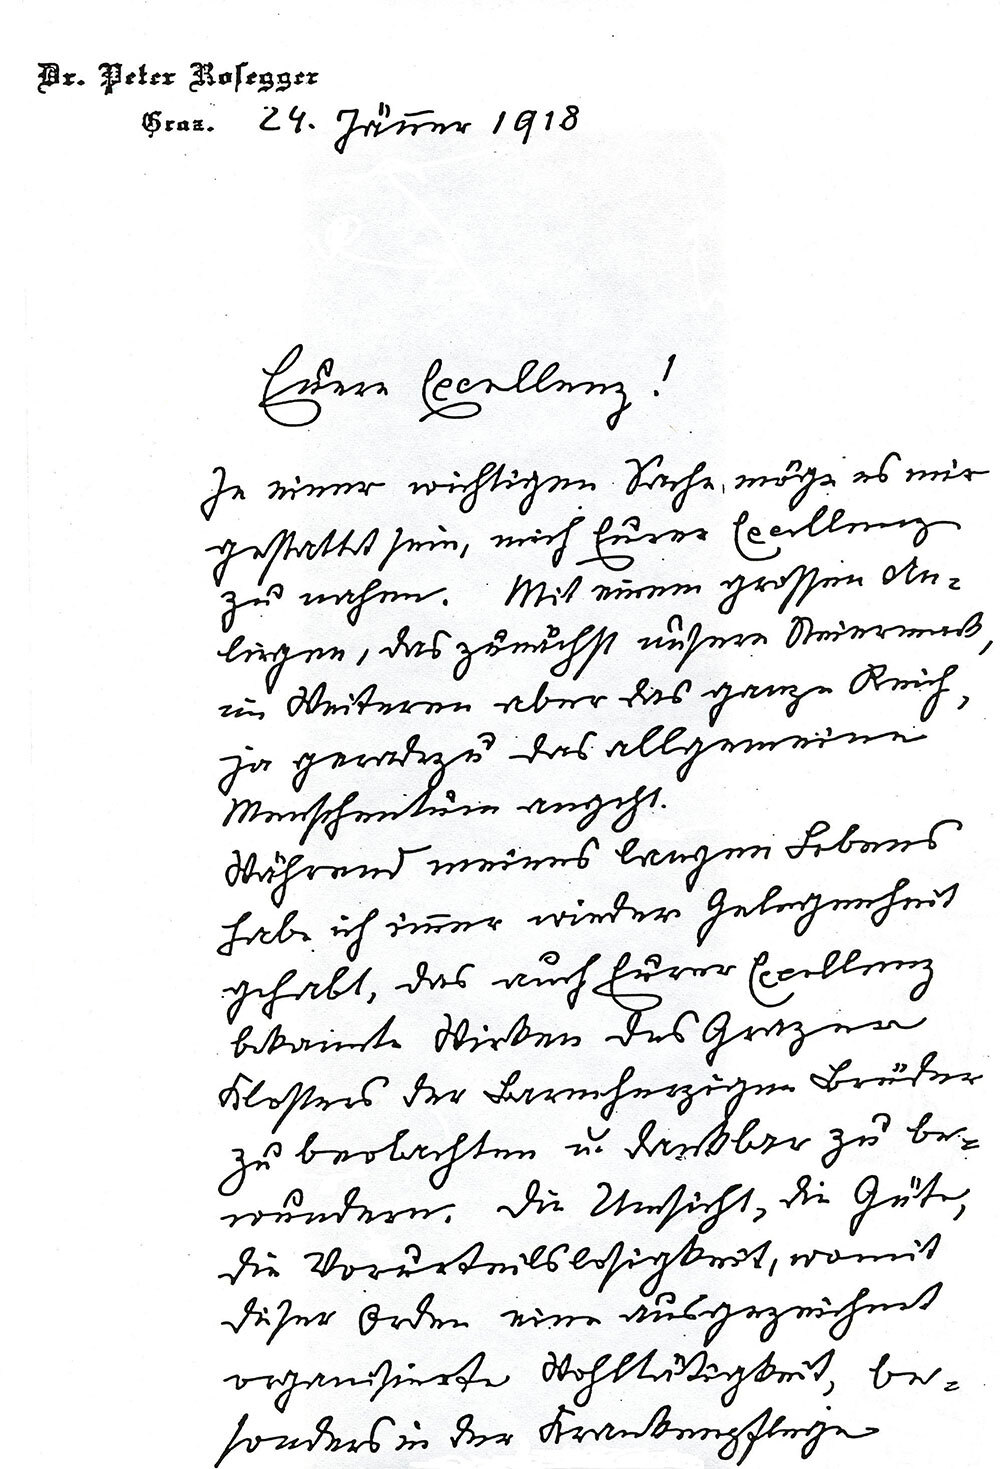 Dr. Peter Rosegger
Graz. 24. Jänner 1918
Euere Excellenz!
In einer wichtigen Sache, möge es mir
gestattet sein, mich Eurer Excellenz
zu nahen. Mit einem grossen An-
liegen, das zunächst unsere Steiermark,
im Weiteren aber das ganze Reich,
ja geradezu das allgemeine
Menschentum angeht.
Während meines langen Lebens
habe ich im̅er wieder Gelegenheit
gehabt, das auch Eurer Excellenz
bekannte Wirken des Grazer
Klosters der Barmherzigen Brüder
zu beobachten u. dankbar zu be-
wundern. Die Umsicht, die Güte,
die Vorurteilslosigkeit, womit
dieser Orden eine ausgezeichnet
organisierte Wohltätigkeit, be-
sonders in der Krankenpflege